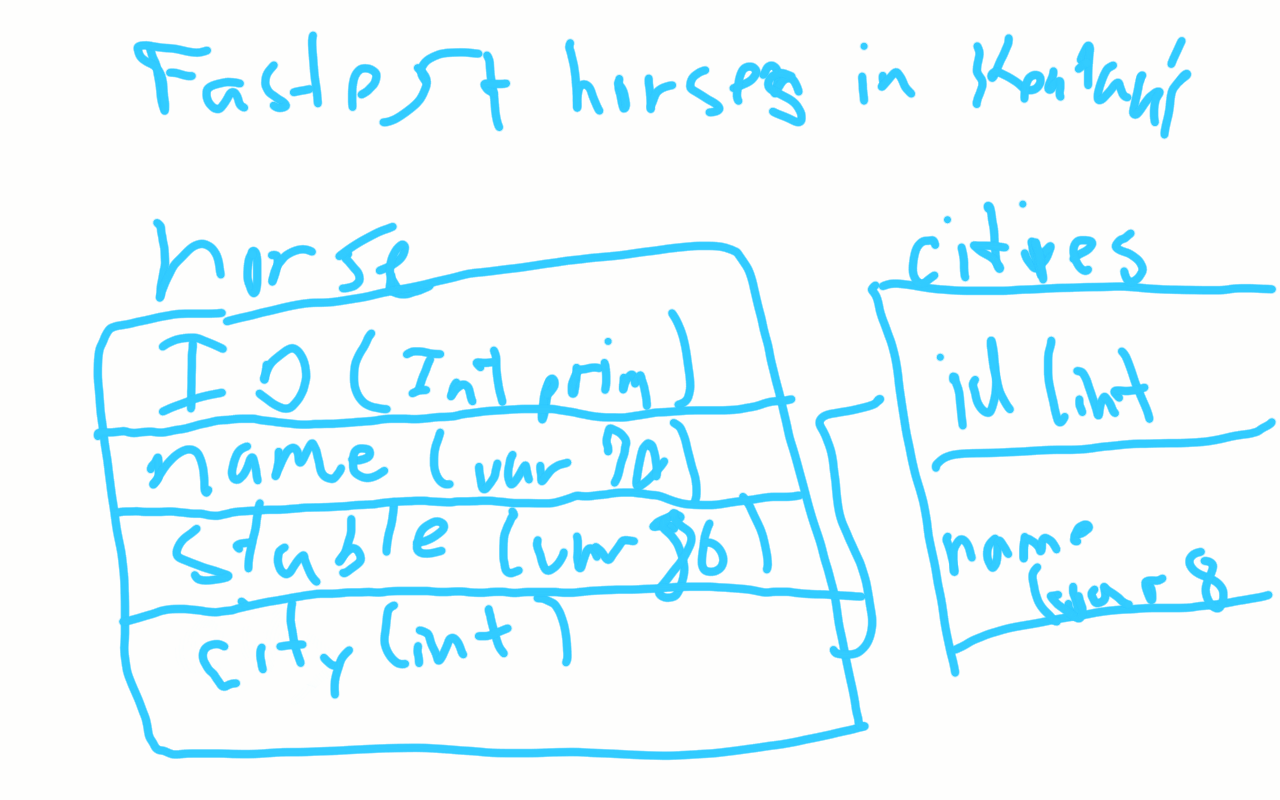 Fastest horses in Kentaky
horse
ID (Int prim)
name (var 70)
stable (var 80)
city (int)
cities
id (int
name
(var 8